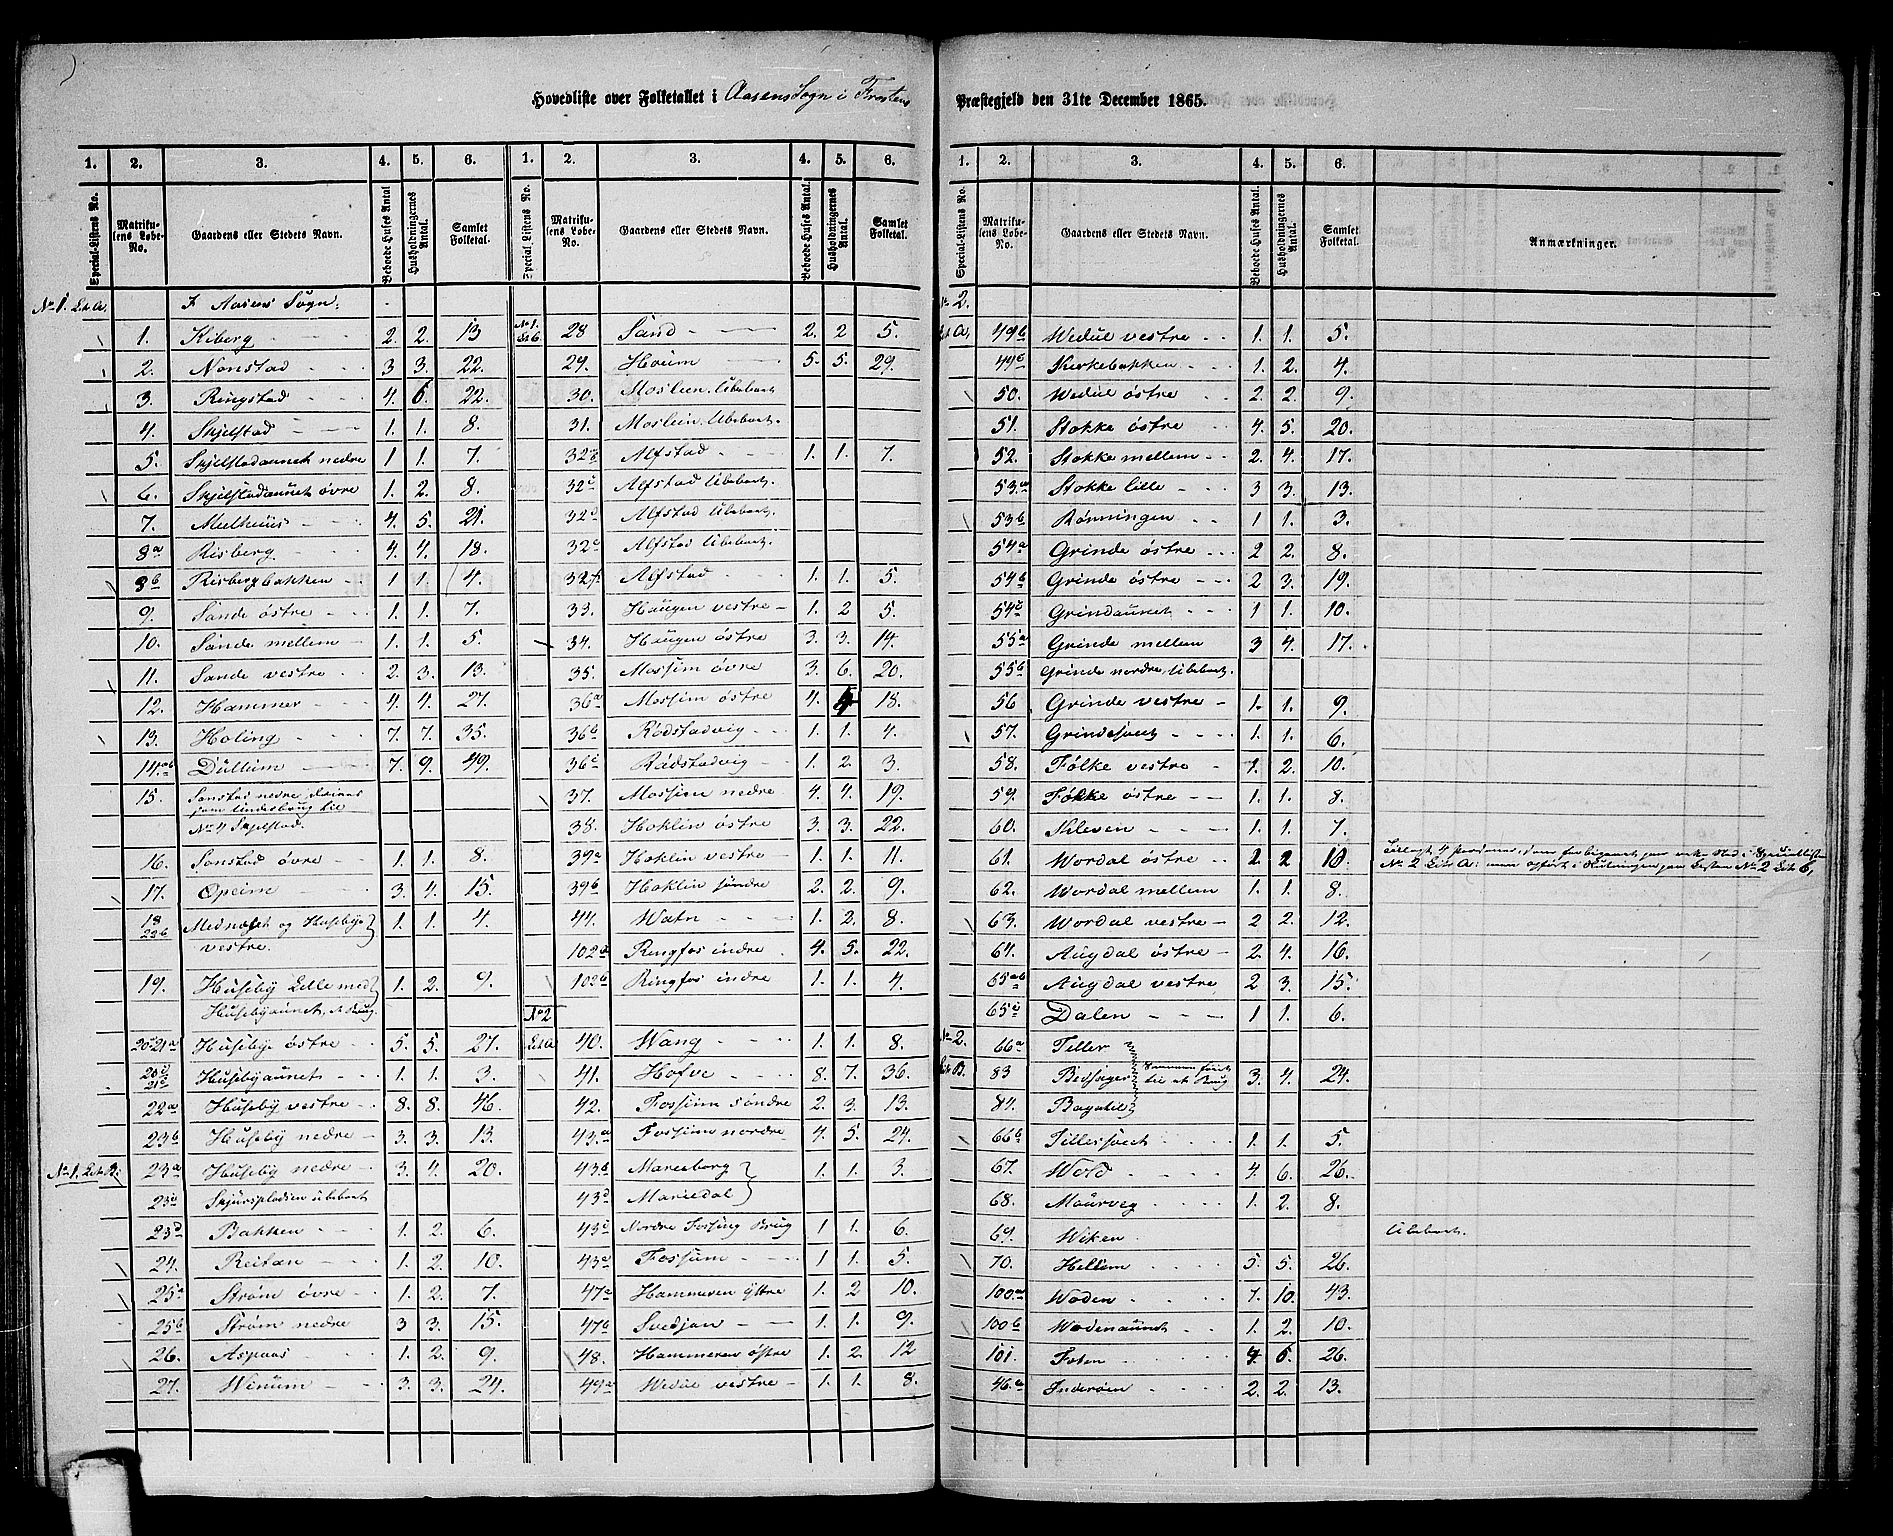 Hovedliste over Folketallet i Aasens Sogn i Frostens Præstegjeld den 31te December 1865.
1. 2. 3. 4. 5. 6. 1. 2. 3. 4. 5. 6. 1. 2. 3. 4. 5. 6.
Special-Listens No. Matrikulens Løbe-No. Gaardens eller Stedets Navn. Beboede Huses Antal Husholdningernes Antal. Samlet Folketal.
Special Listens No. Matrikulens Løbe-No. Gaardens eller Stedets Navn. Beboede Huses Antal. Husholdningernes Antal. Samlet Folketal.
Special-Listens No. Matrikulens Løbe-No. Gaardens eller Stedets Navn. Beboede Huses Antal. Husholdningernes Antal. Samlet Folketal. Anmærkninger.
No 1. Lit. A. I Aasens Sogn.
1. Kiberg 2. 2. 13
2. Nonstad 3 3. 22.
3. Ringstad 4. 6. 22.
4. Skjelstad 1. 1. 8.
5. Skjelstadaunet nedre 1 1. 7.
6. Skjelstadaunet øvre 1. 2. 8.
7. Melhuus 4. 5. 21.
8a Risberg 4. 4. 18.
8b Risbergbakken 1. 1. 4.
9. Sande østre 1. 1. 7.
10. Sande mellem 1. 1. 5.
11. Sande vestre 2. 3. 13.
12. Hammer 4. 4. 27.
13. Holing 7. 7. 35.
14.ab Dullum 7. 9. 49.
15. Sonstad nedre
No 4 Skjelstad.
16. Sonstad øvre 1. 1. 8.
17. Opeim 3. 4. 15.
18 23b Mednaset og Husebye vestre. 1. 1. 4.
19. Huseby Lille med Husebyaunet, et Brug. 1. 2. 9.
20a 21a Husebye østre 5. 5. 27.
Husebyaunet 1. 1. 3.
22a Huseby vestre 8. 8. 46.
23b Huseby nedre 3. 3. 13.
No 1. Lit. B. 23a Huseby nedre 3. 4. 20.
23c Skjurspladsen ubeboet
23d Bakken 1. 2. 6.
24. Reitan 1. 1. 10.
25a Strøm øvre 1. 2. 7.
25b Strøm nedre 3 3. 15.
26. Aspaas 1. 2. 9.
27. Winum 3. 3. 24.
No 1. Lit. B. 28 Sand 2. 2 5.
29. Hoium 5. 5. 29.
30. Moslien. Ubeboet
31. Moslein. Ubeboet.
32b Alfstad 1. 1. 7.
32c Alfstad Ubeboet.
32d Alfstad Ubeboet.
32e Alfstad Ubeboet.
32f. Alfstad 1. 1. 5.
33. Haugen vestre 1. 2 5.
34. Haugen østre 3. 3. 14.
35. Mossim øvre 3. 6. 20.
36a Mossim østre 4. 4 18.
36b Rødstadvig 1. 1. 4.
36c Rødstadvig 1. 2 3.
37. Mossim nedre 4. 4. 19.
38. Hoklin østre 3. 3. 22.
39a Hoklin vestre 1. 1. 11.
39b Hoklin søndre 2. 2. 9.
44. Watn 1. 2 8.
102a Ringfos indre 4. 5. 22.
102b Ringfos indre 1. 1. 4.
No 2
Lit. A 40. Wang 1. 1. 8.
41. Hofve 8. 7. 36.
42. Fossum søndre 2. 3. 13.
43.a Fossum nordre 4. 5 24.
43.b Marieborg
43d Mariedal 1. 1. 3.
43c Nordre Fossing Brug 1 1. 6.
43e Fossum 1 1. 5.
47a Hammeren yttre 1. 2 10.
47b Svedjan 1. 1. 9.
48. Hammeren østre 1. 2. 12
49a Wedul vestre 1. 1. 8.
No 2.
Lit. A. 49b Wedul vestre 1. 1. 5.
Kirkebakken 1. 2. 4.
50. Wedul østre 2 2. 9.
51. Stokke østre 4. 5. 20.
52. Stokke mellem 2. 4. 17.
53.a Stokke lille 3 3. 13.
53b Rønningen 1 1. 3.
54a Grinde østre 2 2. 8.
54b Grinde østre 2 3. 19.
54c Grindaunet 1 1. 10.
55a Grinde mellem 3 4. 17.
55b Grinde nordre, Ubeboet.
56 Grinde vestre 1. 1. 9.
57. 1. 1. 6.
58. Følke vestre 1. 2. 10.
59. Følke østre 1. 1. 8.
60. Nileven 1. 1. 7.
61. Wordal østre 2 2 10
62. Wordal mellem 1. 1. 8.
63. Wordal vestre 2 2. 12.
64. Augdal østre 2. 4. 16.
65ab Augdal vestre 2 3. 15.
65c Dalen 1 1. 6.
No 2. 66a Tiller
Lit. B. 83 3. 4. 24.
84. Bagatil
66b 1. 1. 5.
67. Wold 4. 6. 26.
68. Maurveg 1. 2 8.
69. Wiken Ubeboet.
70. Hellem 5. 5. 26.
100a Woden 7. 10. 43.
100b Wodenaunet 1. 2. 10.
101. Foten 26.
46.a Inderøen 2. 2. 13.